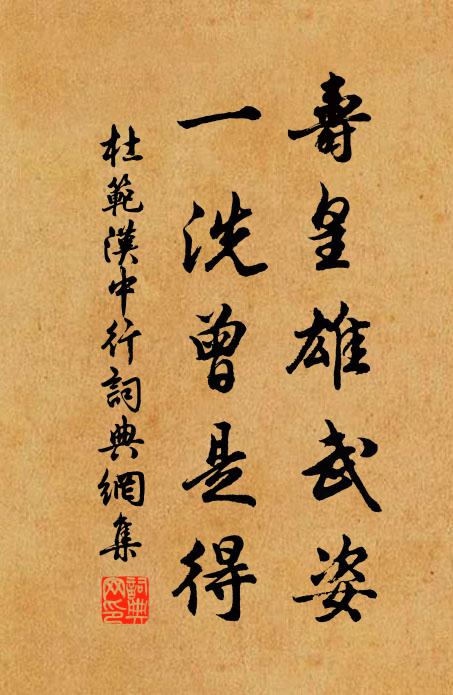 壽皇雄武姿
一洗曾是得
杜範漢中行詞典網集
詞典网印